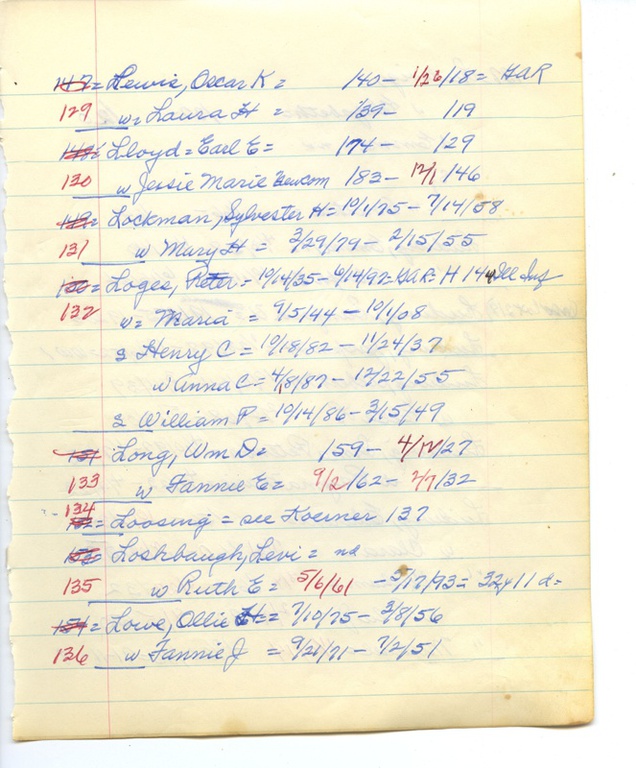 147= Lewis, Oscar K = 140- 1/26/18= GAR
129 w= Laura H = 139- 119
148= Lloyd= Earl E= 174- 129
130 w Jessie Marie Newcom 183- 12/1 146
149= Lockman, Sylvester H= 10/1/75- 7/14/58
131 w Mary H = 3/29/79- 2/15/55
150= Loges, Peter= 10/14/35- 6/14/92= GAR= H 144 Del Inf
132 w= Maria = 9/5/44- 10/1/08
s Henry C= 10/18/82- 11/24/37
w Anna C= 4/8/87- 12/22/55
s William P= 10/14/86- 3/15/49
151= Long, Wm D= 159- 4/12/27
133 w Fannie E= 9/2/62- 2/7/32
134
152= Loosing= see Koerner 137
153= Loshbaugh, Levi= nd
135 w Ruth E= 5/6/61 -5/17/93= 32y 11d=
154= Lowe, Ollie H= 7/10/75- 3/8/56
136 w Fannie J = 9/21/71- 7/2/51